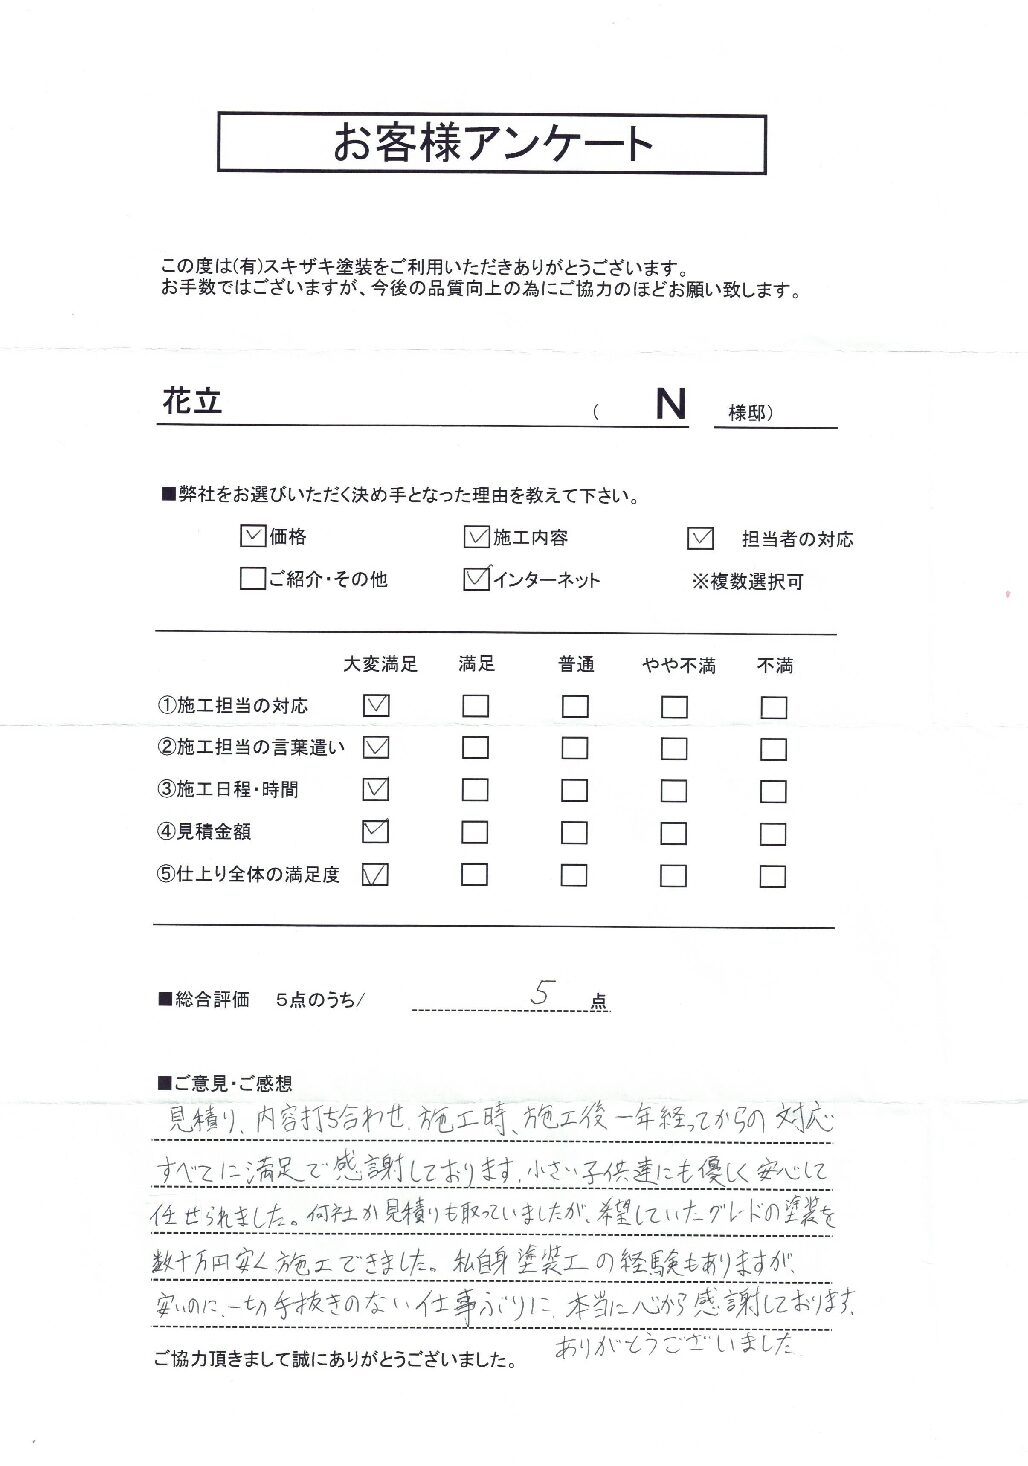 お客様アンケート
この度は(有)スキザキ塗装をご利用いただきありがとうございます。
お手数ではございますが、今後の品質向上の為にご協力のほどお願い致します。
花立 ( N 様邸)
■弊社をお選びいただく決め手となった理由を教えて下さい。
☑価格 ☑施工内容 ☑ 担当者の対応
☐ご紹介・その他 ☑インターネット ※複数選択可
大変満足 満足 普通 やや不満 不満
①施工担当の対応 ☑ ☐ ☐ ☐ ☐
②施工担当の言葉遣い ☑ ☐ ☐ ☐ ☐
③施工日程・時間 ☑ ☐ ☐ ☐ ☐
④見積金額 ☑ ☐ ☐ ☐ ☐
⑤仕上り全体の満足度 ☑ ☐ ☐ ☐ ☐
■総合評価 5点のうち/ 5 点
■ご意見・ご感想
見積り、内容打ち合わせ、施工時、施工後一年経ってからの対応
すべてに満足で感謝しております。小さい子供達にも優しく安心して
任せられました。何社か見積りも取っていましたが、希望していたグレードの塗装を
数十万円安く施工できました。私自身塗装工の経験もありますが、
安いのに、一切手抜きのない仕事ぶりに、本当に心から感謝しております。
ありがとうございました
ご協力頂きまして誠にありがとうございました。